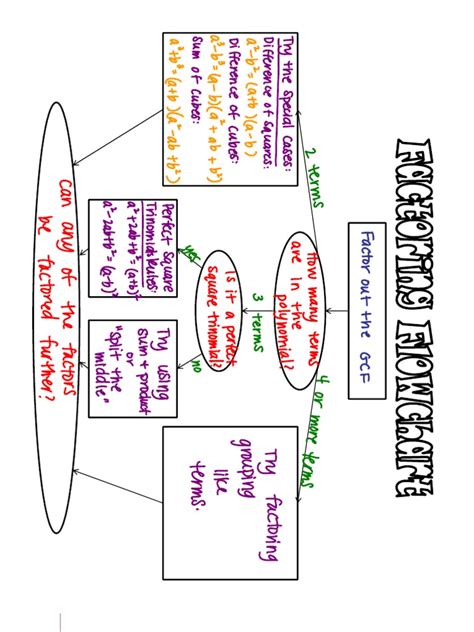 Factoring Flowchart
Factor out the GCF
How many terms
are in the
polynomial?
2 terms
3 terms
4 or more terms
Try the Special Cases:
Difference of Squares:
a²-b²=(a+b)(a-b)
Difference of Cubes:
a³-b³=(a-b)(a²+ab+b²)
Sum of Cubes:
a³+b³=(a+b)(a²-ab+b²)
Is it a perfect
square trinomial?
yes
no
Perfect Square
Trinomials Rules:
a²+2ab+b²=(a+b)²
a²-2ab+b²=(a-b)²
Try using
sum + product
or
"split the
middle"
Try factoring
grouping
like
terms.
Can any of the factors
be factored further?